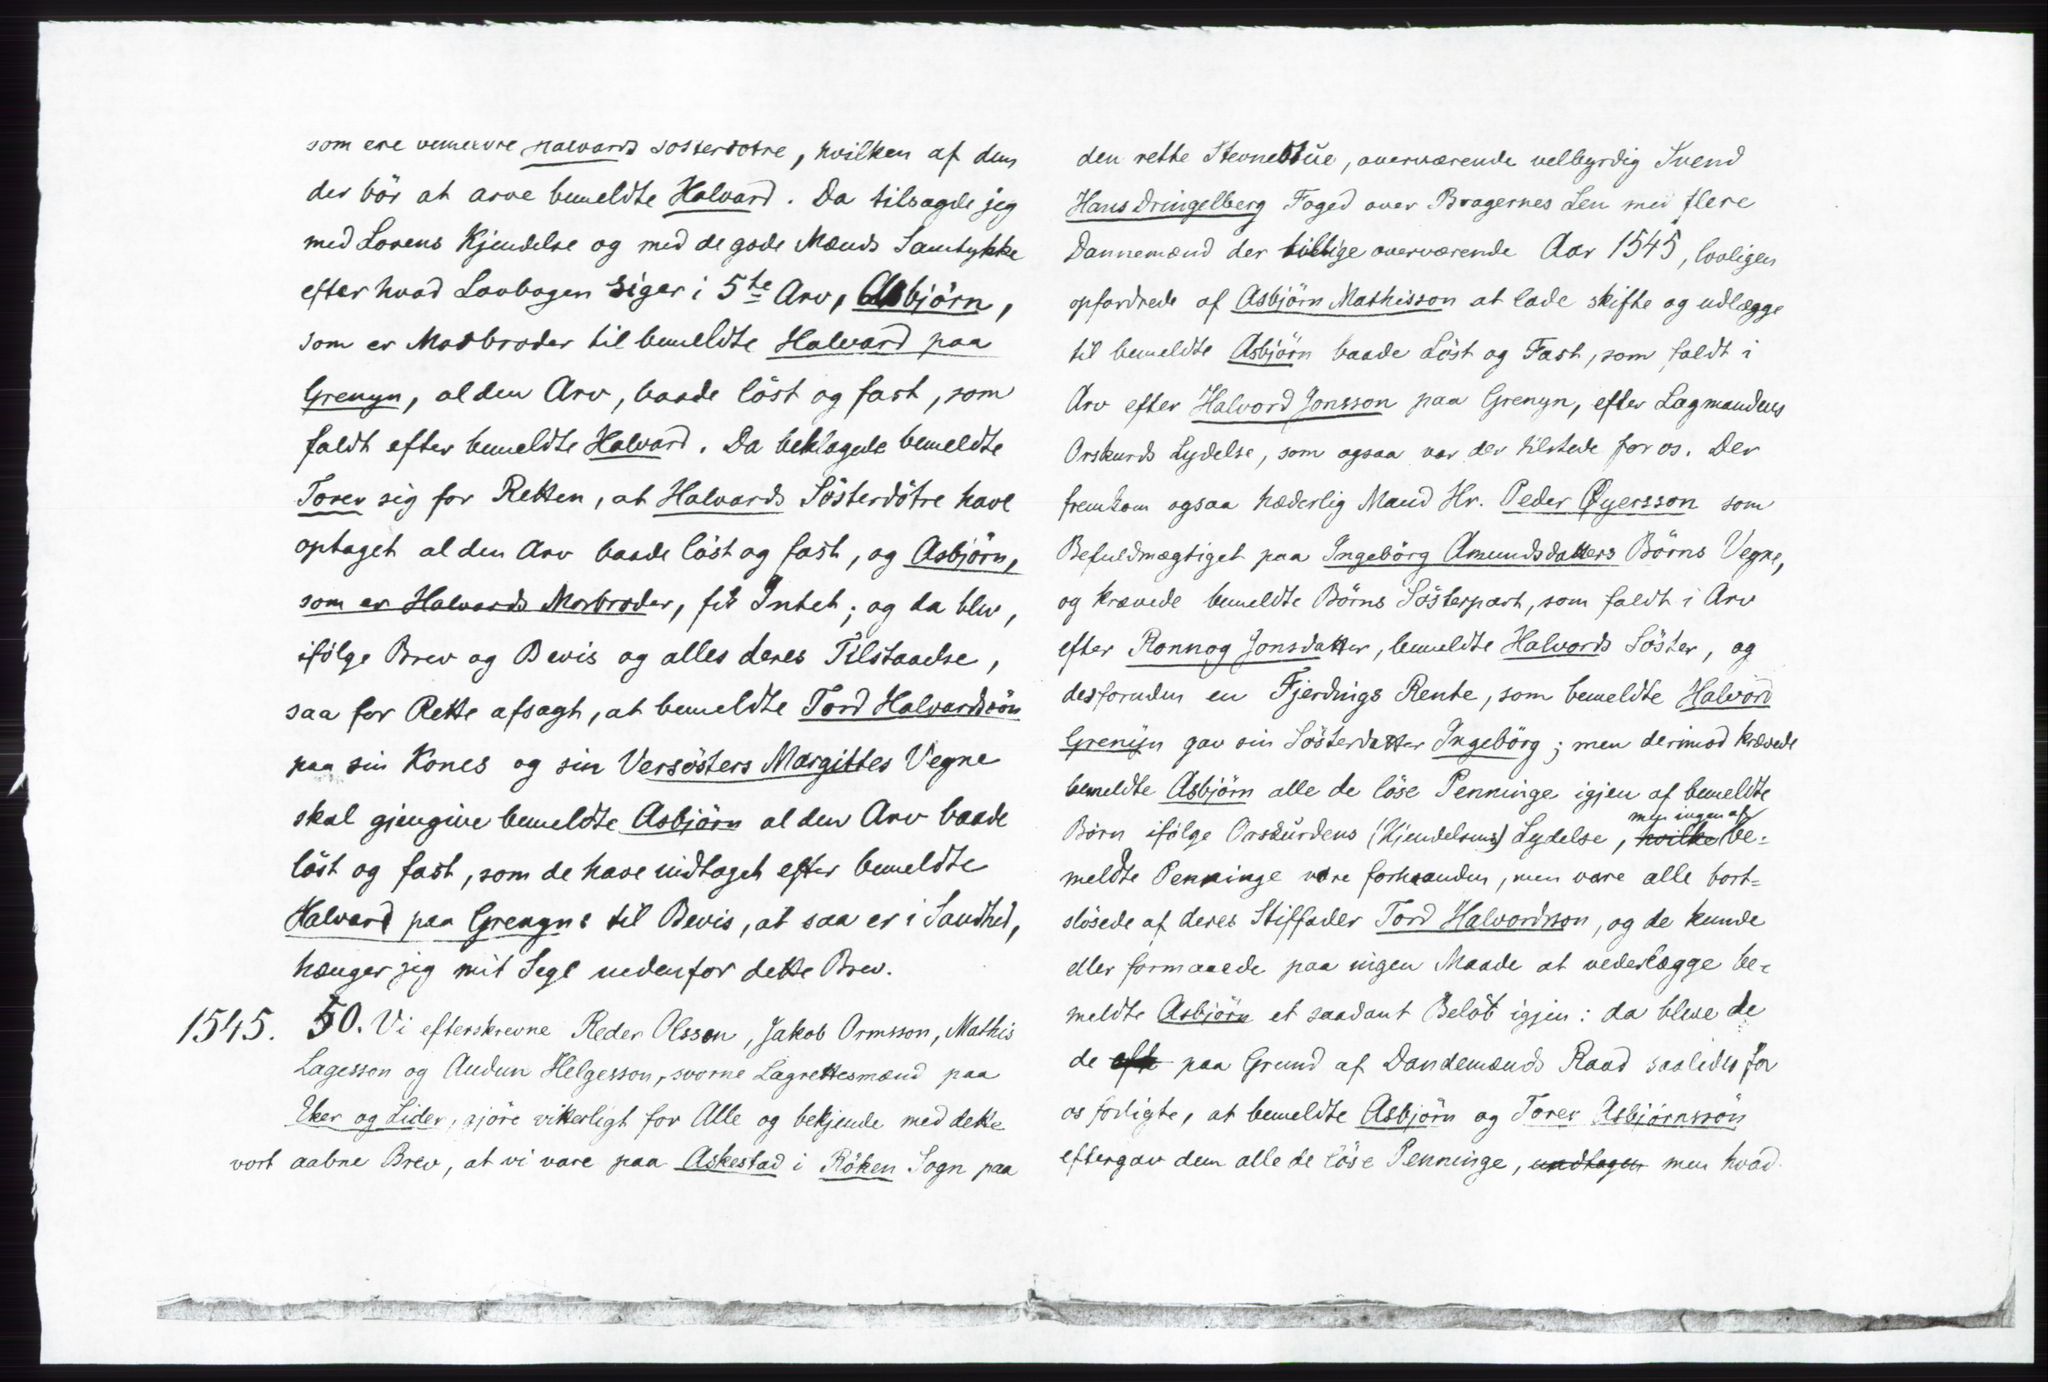 som ere bemeldte Halvards Sösterdötre, hvilken af dem
der bör at arve bemeldte Halvard. Da tilsagde jeg
med Lovens Kjendelse og med de gode Mænds Samtykke
efter hvad Lovbogen siger i 5te Arv, Asbjörn,
som er Morbroder til bemeldte Halvard paa
Grenyn, al den Arv, baade löst og fast, som
faldt efter bemeldte Halvard. Da beklagede bemeldte
Torer sig for Retten, at Halvards Sösterdötre have
optaget al den Arv baade löst og fast, og Asbjörn,
som er Halvards Morbroder, fik Intet; og da blev,
ifölge Brev og Bevis og alles deres Tilstaaelse,
saa for Rette afsagt, at bemeldte Tord Halvardssön
paa sin Kones og sin Versösters Margittes Vegne
skal gjengive bemeldte Asbjörn al den Arv baade
löst og fast, som de have indtaget efter bemeldte
Halvard paa Grenyns til Bevis, at saa er i Sandhed,
hænger jeg mit Segl nedenfor dette Brev.
1545. 50. Vi efterskrevne Reder Olsson, Jakob Ormsson, Mathis
Lagesson og Audun Helgesson, svorne Lagrettesmænd paa
Eker og Lider, gjöre vitterligt for Alle og bekjende med dette
vort aabne Brev, at vi vare paa Askestad i Röken Sogn paa
den rette Stevnestue, overværende velbyrdig Svend
Hans Dringelberg Foged over Bragernes Len med flere
Dannemænd der tillige overværende Aar 1545, lovligen
opfordrede af Asbjörn Mathisson at lade skifte og udlægge
til bemeldte Asbjörn baade Löst og Fast, som faldt i
Arv efter Halvord Jonsson paa Grenyn, efter Lagmandens
Orskurds Lydelse, som ogsaa var der tilstede for os. Der
fremkom ogsaa hæderlig Mand Hr. Peder Öyersson som
Befuldmægtiget paa Ingebörg Amundsdatters Börns Vegne,
og krævede bemeldte Börns Sösterpart, som faldt i Arv
efter Ronnog Jonsdatter, bemeldte Halvords Söster, og
desforuden en Fjerdings Rente, som bemeldte Halvord
Grenyn gav sin Sösterdatter Ingebörg; men derimod krævede
bemeldte Asbjörn alle de löse Penninge igjen af bemeldte
Börn ifölge Orskurdens (Kjendelsens) Lydelse, hvilke men ingen af be-
meldte Penninge vare forhaanden, men vare alle bort-
slösede af deres Stiffader Tord Halvordsson, og de kunde
eller formaaede paa ingen Maade at vederlægge be-
meldte Asbjörn et saadant Belöb igjen: da bleve de
de eft paa Grund af Dandemænds Raad saaledes for
os forligte, at bemeldte Asbjörn og Torer Asbjörnssön
eftergav dem alle de löse Penninge, undtagen men hvad